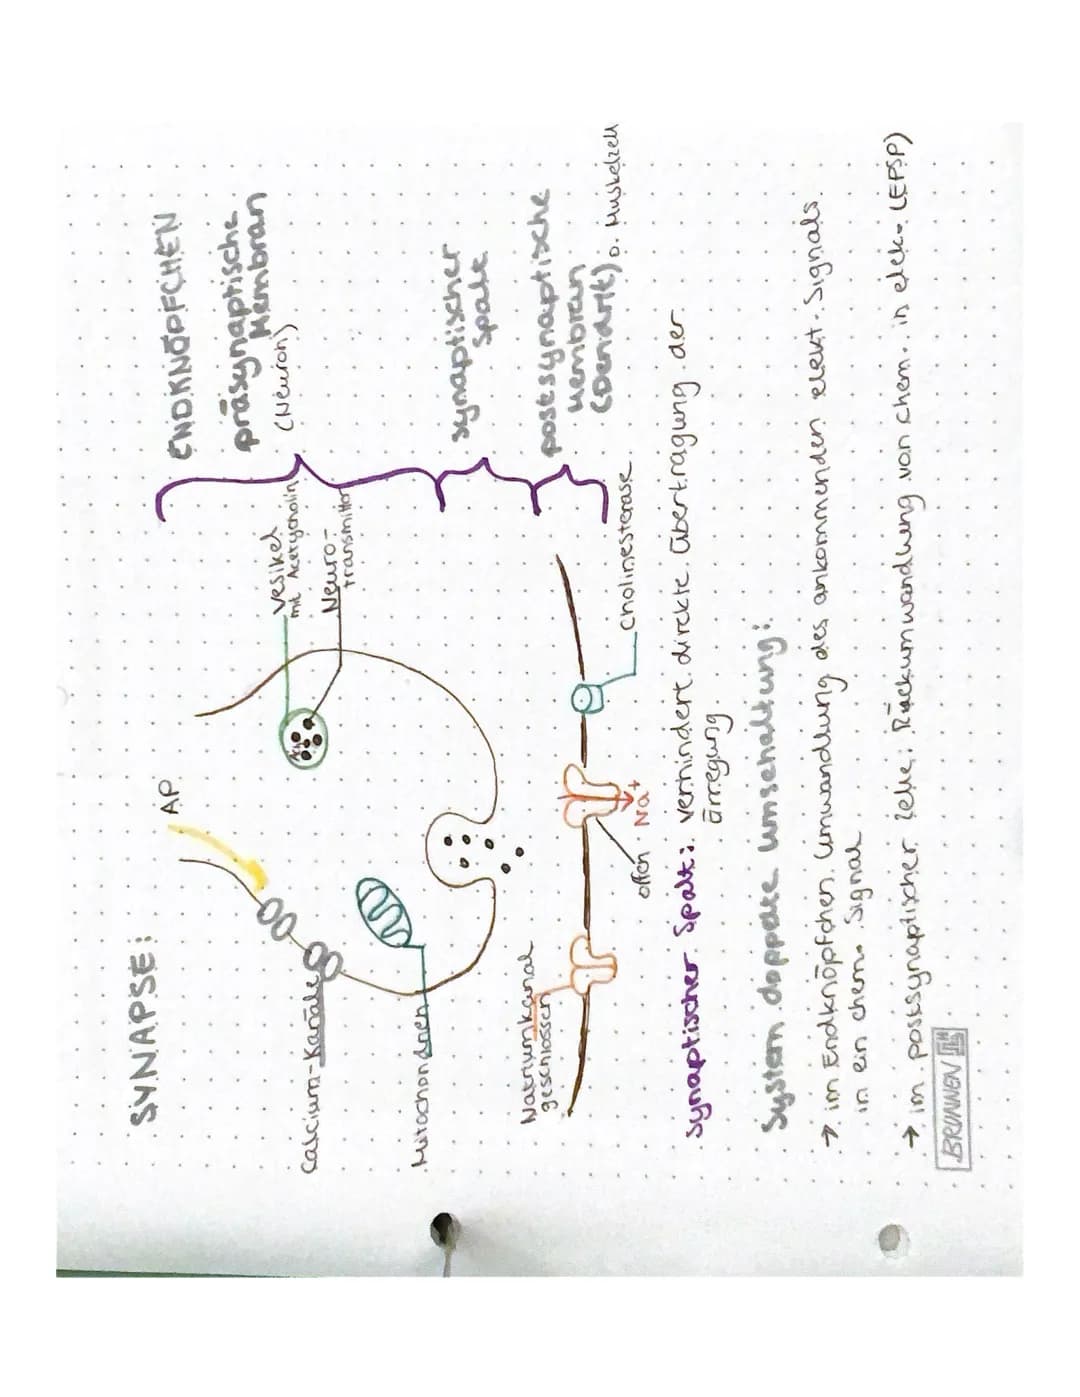 SYNAPSE:
AP
ENDKNÖPFCHEN
präsynaptische
Membran
(Neuron)
Calcium-Kanäle
Vesikel
mit Acetycholin
Neuro-
transmitter
Ach
Mitochondrien
synaptischer
Spalt
Natriumkanal
geschlossen
postsynaptische
Membran
(Dendrit) o. Muskelzell
Na+
offen
Cholinesterase
Synaptischer Spalt: verhindert direkte Übertragung der
Erregung
System doppelte Umschaltung:
→ im Endknöpfchen Umwandlung des ankommenden elekt. Signals
in ein chem. Signal
→ im postsynaptischer Zelle: Rückumwandlung von chem. in elek. (EPSP)
BRUNNEN